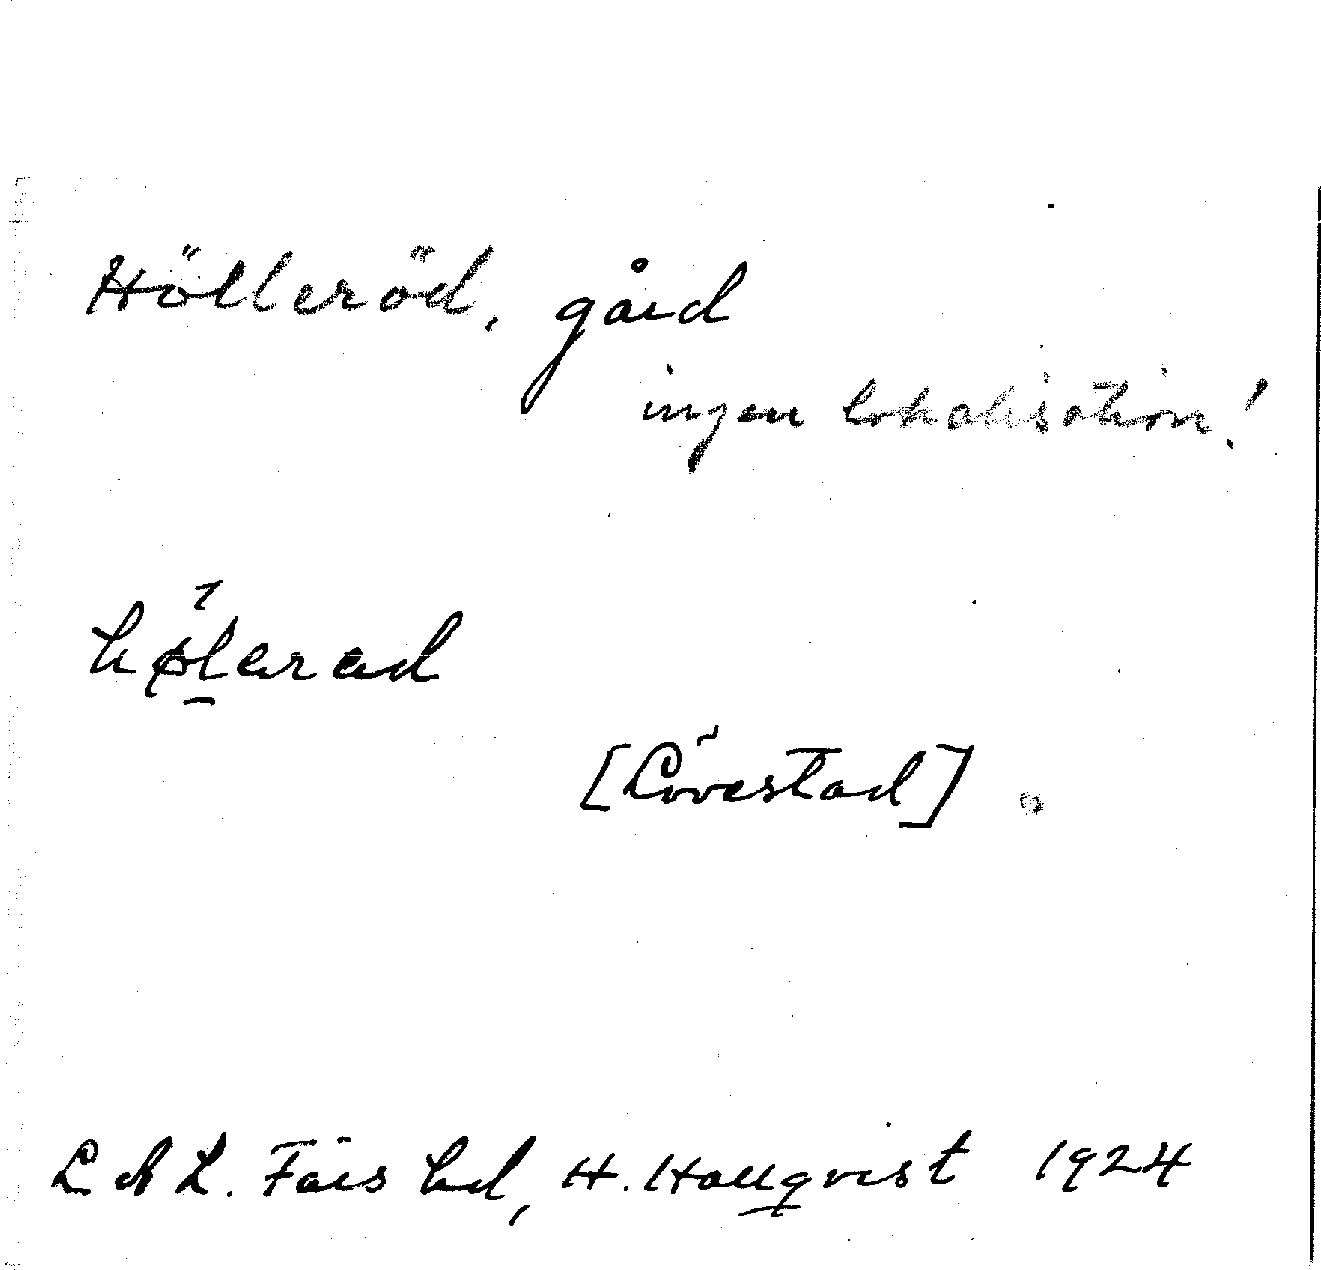 Hölleröd, gård
ingen lokalisation!
hølarad
[Lövestad]
LAL. Färs hd, H. Hallqvist 1924